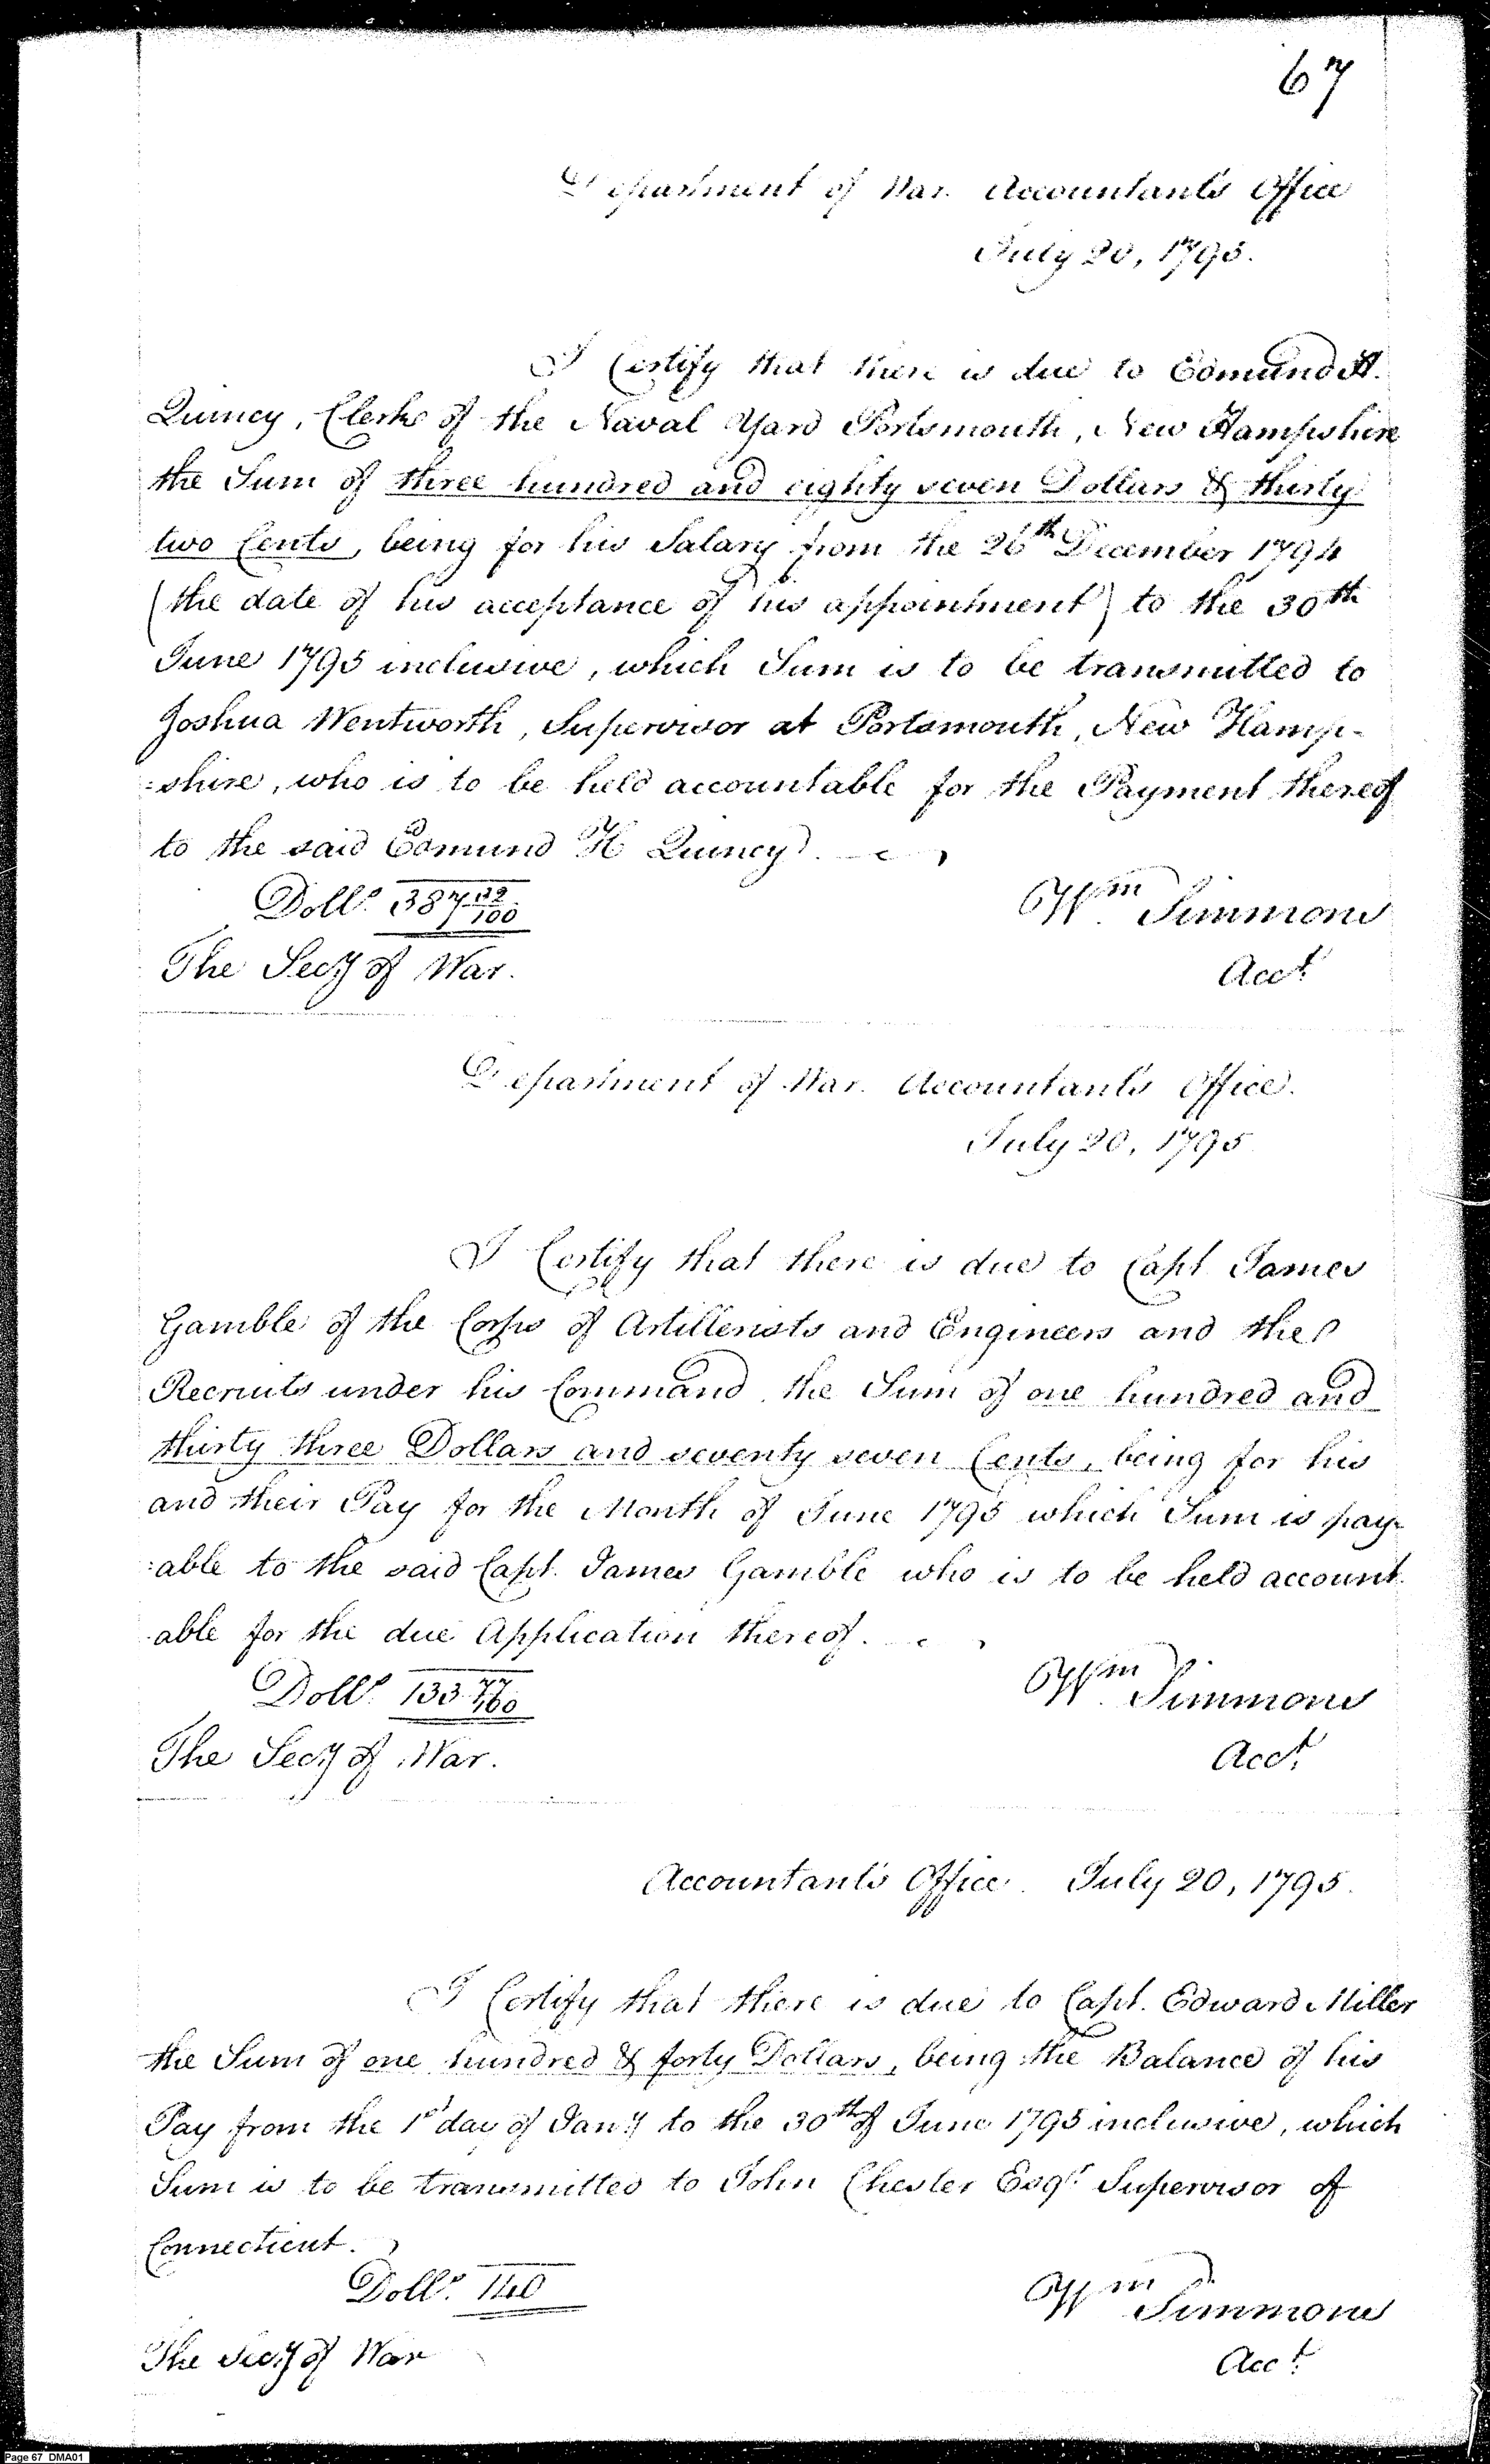 67
Department of War. Accountant's Office
July 20, 1795.
I Certify that there is due to Edmund H.
Quincy, Clerk of the Naval Yard Portsmouth, New Hampshire
the Sum of three hundred and eighty seven Dollars & thirty
two Cents, being for his Salary from the 26th December 1794
(the date of his acceptance of his appointment) to the 30th
June 1795 inclusive, which Sum is to be transmitted to
Joshua Wentworth, Supervisor at Portsmouth, New Hamp-
:shire, who is to be held accountable for the Payment thereof
to the said Edmund H Quincy.
Dolls. 387 32/100
Wm Simmons
The Secy of War.
Acct.
Department of War. Accountant's Office.
July 20, 1795
I Certify that there is due to Capt. James
Gamble of the Corps of Artillerists and Engineers and the
Recruits under his Command, the Sum of one hundred and
thirty three Dollars and seventy seven Cents, being for his
and their Pay for the Month of June 1795 which Sum is pay-
:able to the said Capt. James Gamble who is to be held account
able for the due Application thereof.
Dolls. 133 77/100
Wm Simmons
The Secy of War.
Acct.
Accountant's Office. July 20, 1795.
I Certify that there is due to Capt. Edward Miller
the Sum of one hundred & forty Dollars, being the Balance of his
Pay from the 1st day of Jany to the 30th of June 1795 inclusive, which
Sum is to be transmitted to John Chester Esqr. Supervisor of
Connecticut.
Dolls. 140
Wm Simmons
The Secy of War
Acct.
Page 67 DMA01